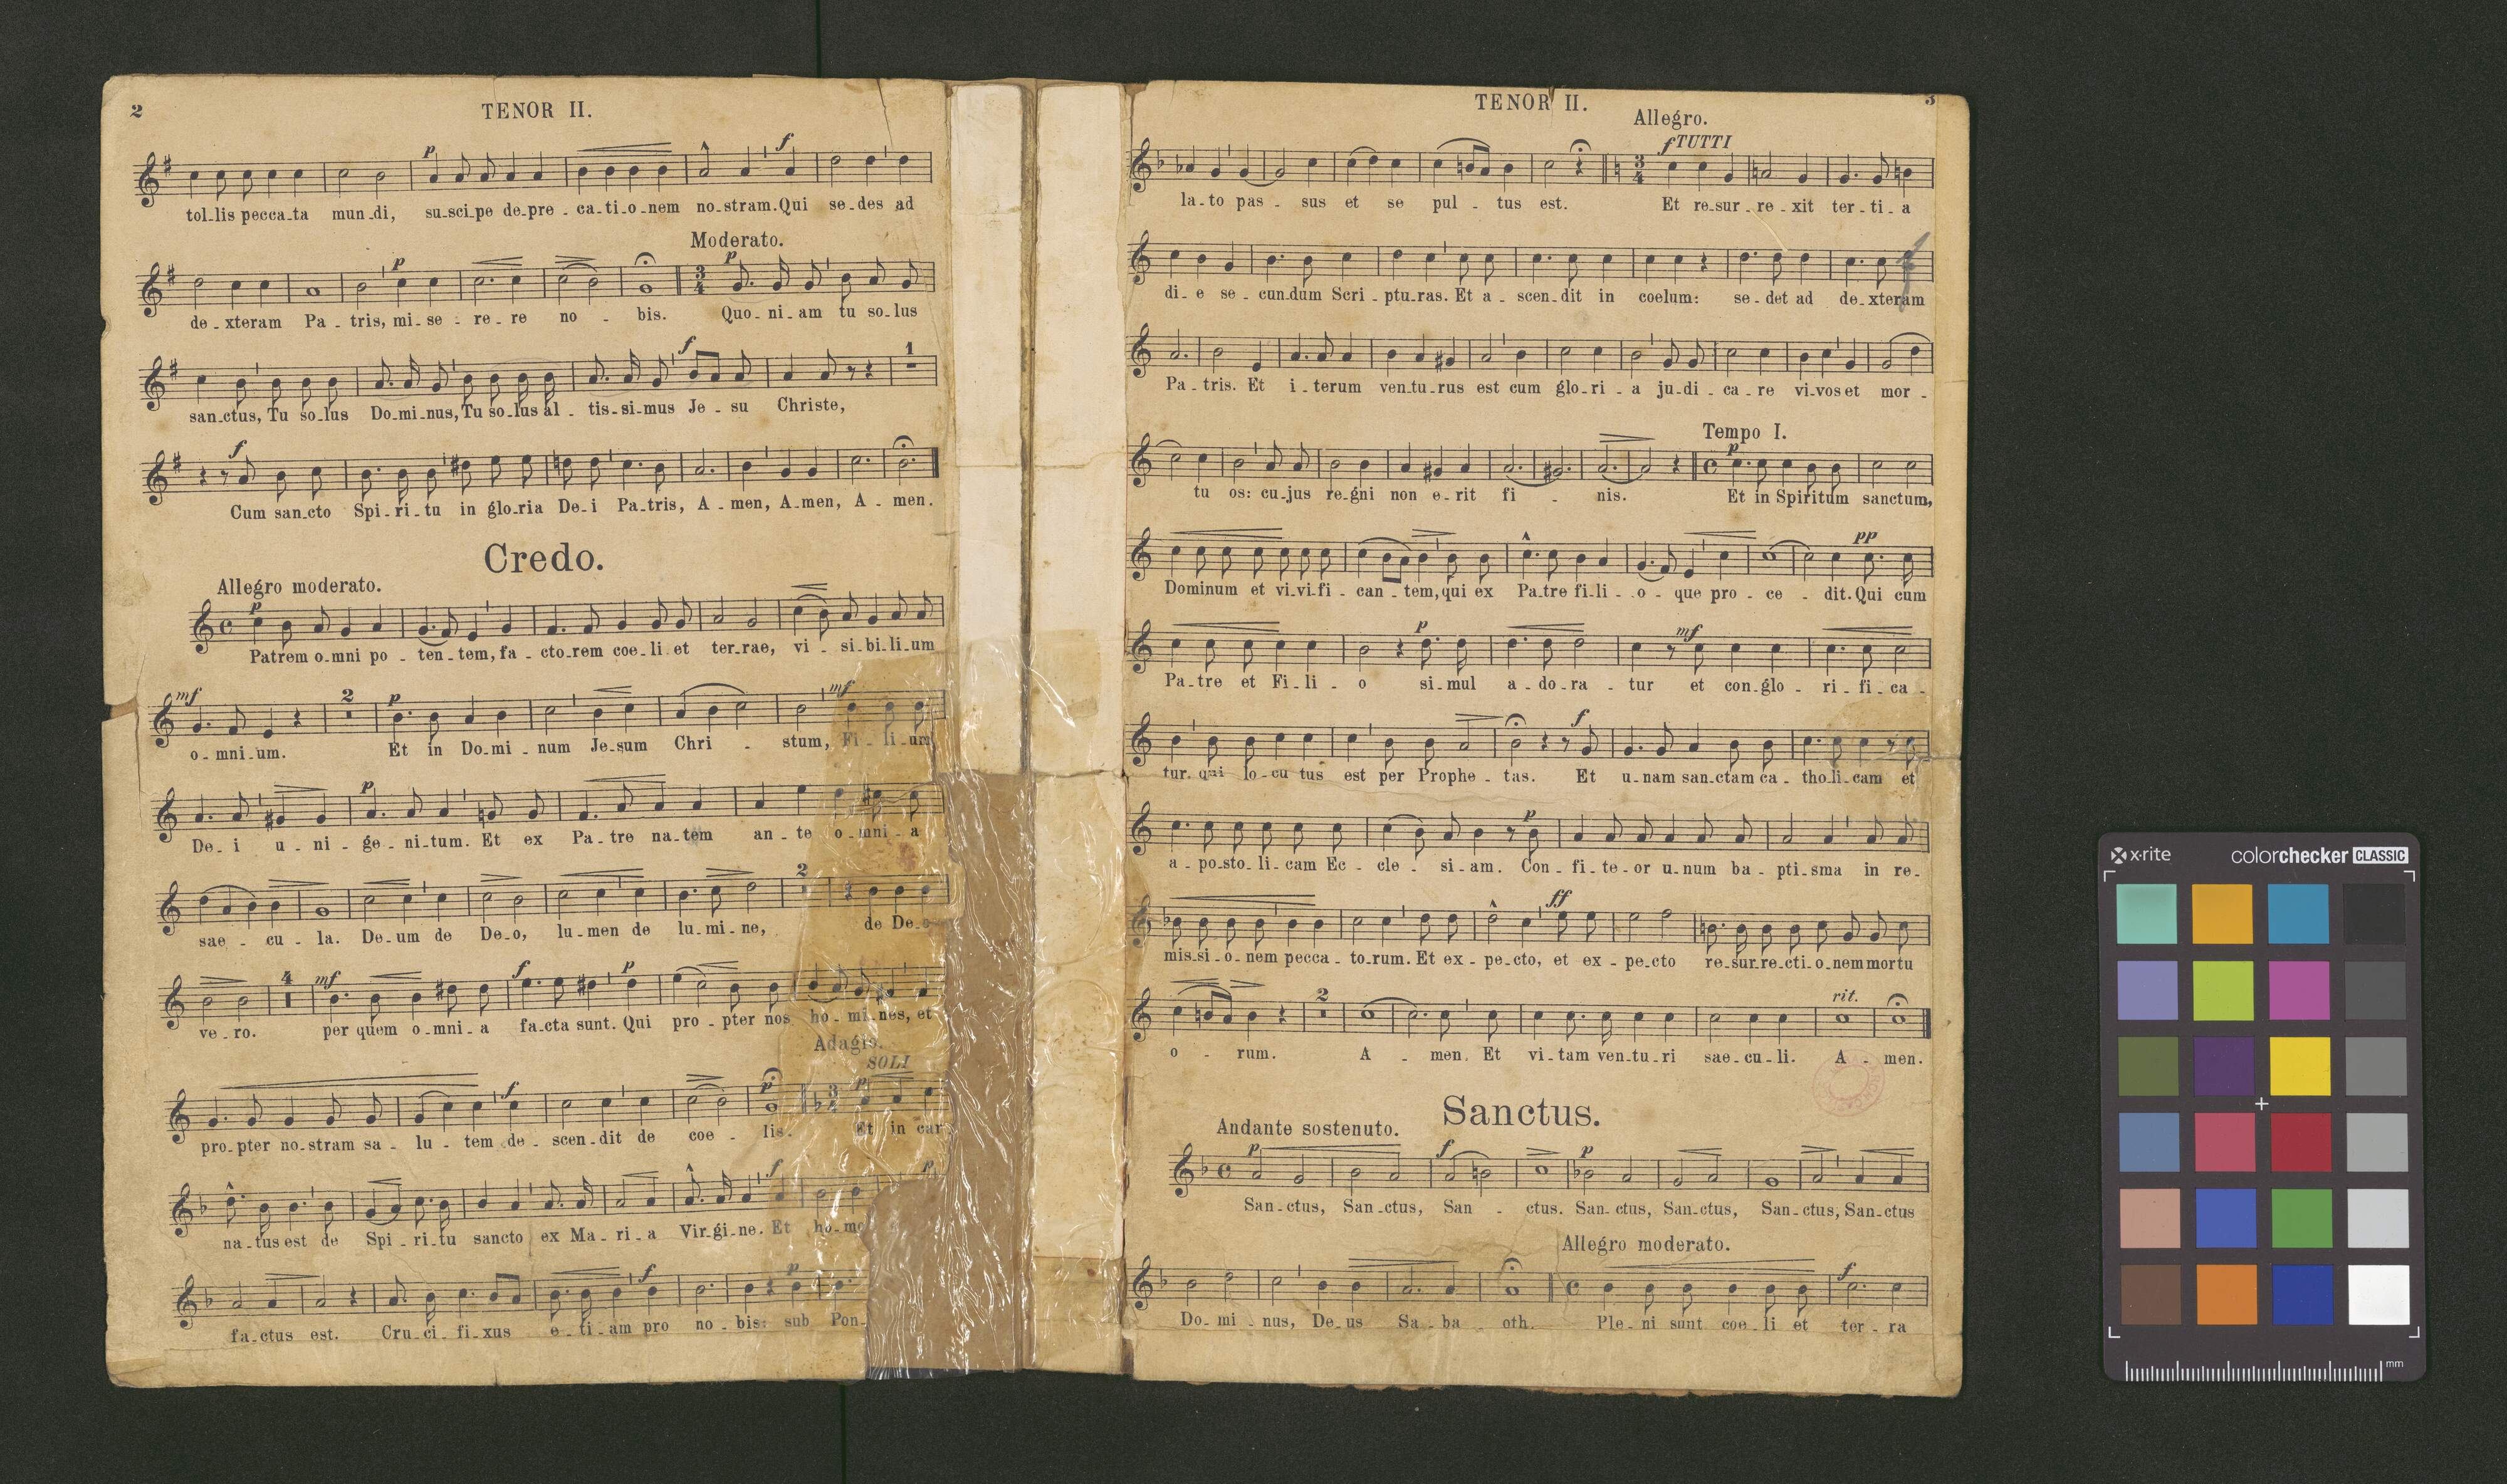 2
TENOR II.
p f
tol_lis pecca_ta mun_di, su_sci_pe de_pre_ca_ti_o_nem no_stram. Qui se_des ad
Moderato.
p p
de_xteram Pa_tris, mi_se_re_re no_bis. Quo_ni_am tu so_lus
f 1
san_ctus, Tu so_lus Do_mi_nus, Tu so_lus al_tis_si_mus Je_su Christe,
f
Cum san_cto Spi_ri_tu in glo_ria De_i Pa_tris, A_men, A_men, A_men.
Credo.
Allegro moderato.
p
Patrem o_mni po_ten_tem, fa_cto_rem coe_li et ter_rae, vi_si_bi_li_um
mf 2 p mf
o_mni_um. Et in Do_mi_num Je_sum Chri_stum, Fi_li_um
p
De_i u_ni_ge_ni_tum. Et ex Pa_tre na_tem an_te o_mni_a
2
sae_cu_la. De_um de De_o, lu_men de lu_mi_ne, de De_o
4 mf f p
ve_ro. per quem o_mni_a fa_cta sunt. Qui pro_pter nos ho_mi_nes, et
Adagio.
SOLI
f p p
pro_pter no_stram sa_lu_tem de_scen_dit de coe_lis. Et in car
f p
na_tus est de Spi_ri_tu sancto ex Ma_ri_a Vir_gi_ne. Et ho_mo
f p
fa_ctus est. Cru_ci_fi_xus e_ti_am pro no_bis: sub Pon_
TENOR II.
3
Allegro.
f TUTTI
la_to pas_sus et se pul_tus est. Et re_sur_re_xit ter_ti_a
di_e se_cun_dum Scri_ptu_ras. Et a_scen_dit in coelum: se_det ad de_xteram
Pa_tris. Et i_terum ven_tu_rus est cum glo_ri_a ju_di_ca_re vi_vos et mor_
Tempo I.
p
tu os: cu_jus re_gni non e_rit fi_nis. Et in Spiritum sanctum,
pp
Dominum et vi_vi_fi_can_tem, qui ex Pa_tre fi_li_o_que pro_ce_dit. Qui cum
p mf
Pa_tre et Fi_li_o si_mul a_do_ra_tur et con_glo_ri_fi_ca_
f
tur. qui lo_cu tus est per Prophe_tas. Et u_nam san_ctam ca_tho_li_cam et
p
a_po_sto_li_cam Ec_cle_si_am. Con_fi_te_or u_num ba_pti_sma in re_
ff
mis_si_o_nem pecca_to_rum. Et ex_pe_cto, et ex_pe_cto re_sur_re_cti_o_nem mortu
2 rit.
o_rum. A_men. Et vi_tam ven_tu_ri sae_cu_li. A_men.
Sanctus.
Andante sostenuto.
p f p
San_ctus, San_ctus, San_ctus. San_ctus, San_ctus, San_ctus, San_ctus
Allegro moderato.
f
Do_mi_nus, De_us Sa_ba_oth. Ple_ni sunt coe_li et ter_ra
x-rite colorchecker CLASSIC
mm